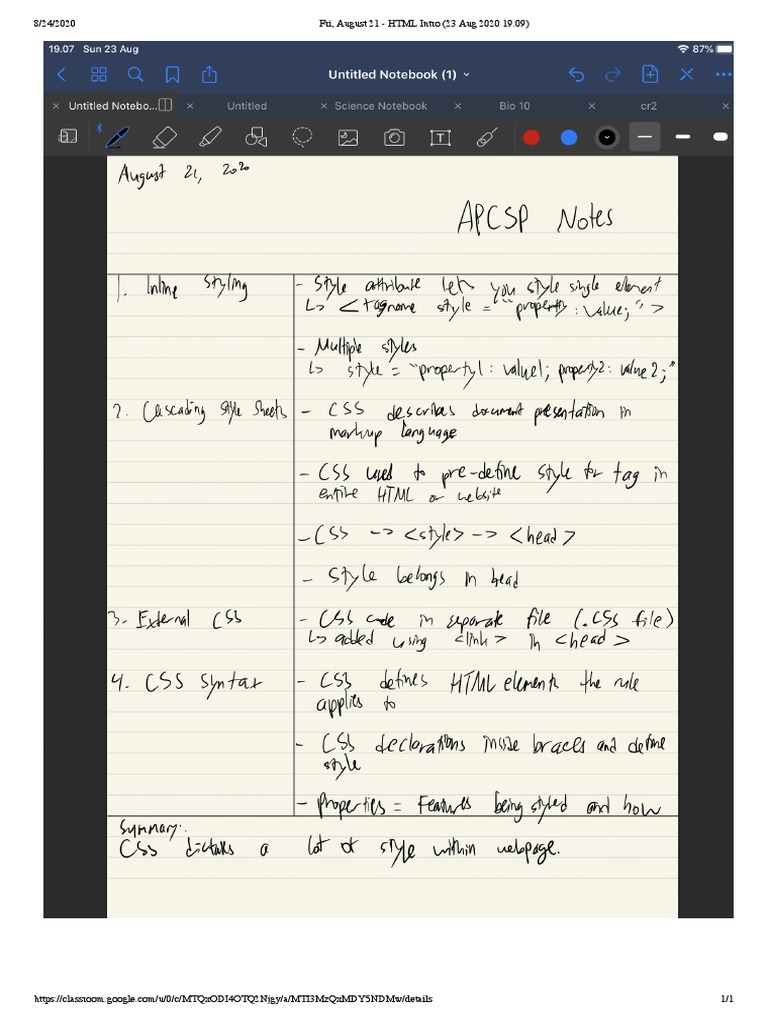 8/24/2020 Fri, August 21 - HTML Intro (23 Aug 2020 19.09)
19.07 Sun 23 Aug 87%
Untitled Notebook (1)
Untitled Notebo... Untitled Science Notebook Bio 10 cr2
T
August 21, 2020
APCSP Notes
1. Inline Styling - Style attribute lets you style single element
↳ <tagname style = "property : value;">
- Multiple styles
↳ style = "property1 : value1; property2 : value 2;"
2. Cascading Style Sheets - CSS describes document presentation in
markup language
- CSS used to pre-define style for tag in
entire HTML or website
- CSS --> <style> --> <head>
- Style belongs in head
3. External CSS - CSS code in separate file (.CSS file)
↳ added using <link> in <head>
4. CSS Syntax - CSS defines HTML elements the rule
applies to
- CSS declarations inside braces and define
style
- Properties = Features being styled and how
Summary:
CSS dictates a lot of style within webpage.
https://classroom.google.com/u/0/c/MTQxODI4OTQ2Njgy/a/MTI3MzQxMDY5NDMw/details 1/1